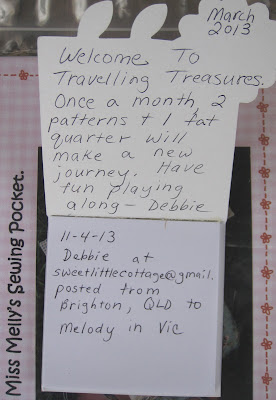 March
2013
Welcome To
Travelling Treasures.
Once a month, 2
patterns + 1 fat
quarter will
make a new
journey. Have
fun playing
along - Debbie
11-4-13
Debbie at
sweetlittlecottage@gmail.
posted from
Brighton, QLD to
melody in Vic
Miss Melly's Sewing Pocket.